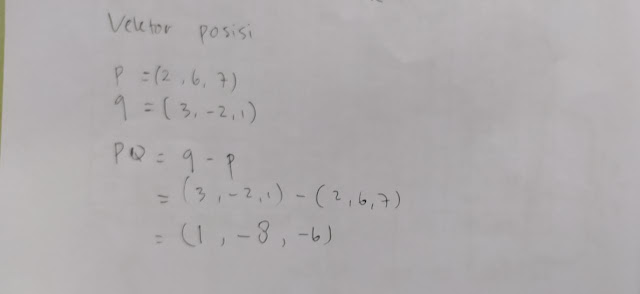 Vektor posisi
p = (2, 6, 7)
q = (3, -2, 1)
PQ = q - p
= (3, -2, 1) - (2, 6, 7)
= (1, -8, -6)